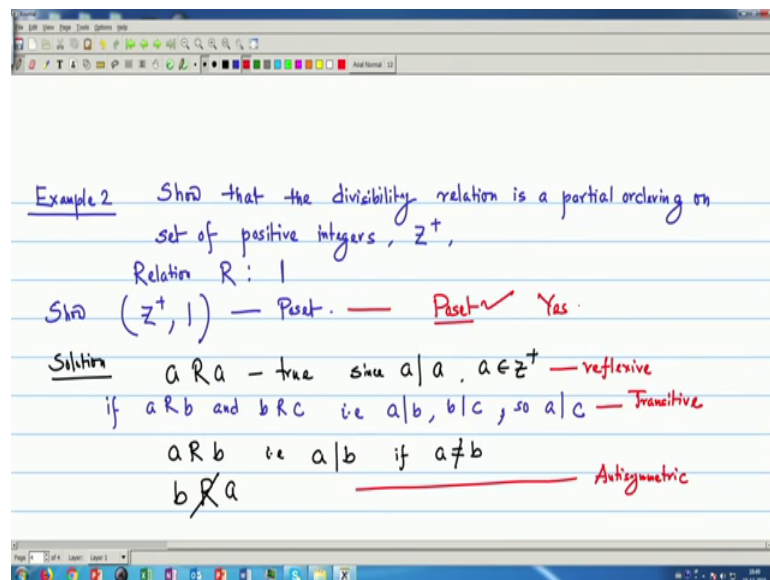 File Edit View Page Tools Options Help
Arial Normal 12
Example 2 Show that the divisibility relation is a partial ordering on
set of positive integers, Z⁺,
Relation R : |
Show (Z⁺, |) — Poset. — Poset ✓ Yes.
Solution a R a – true since a|a, a ∈ Z⁺ — reflexive
if a R b and b R c i.e a|b, b|c, so a|c — Transitive
a R b i.e a|b if a ≠ b
b R̸ a — Antisymmetric
Page 4 of 4 Layer: Layer 1